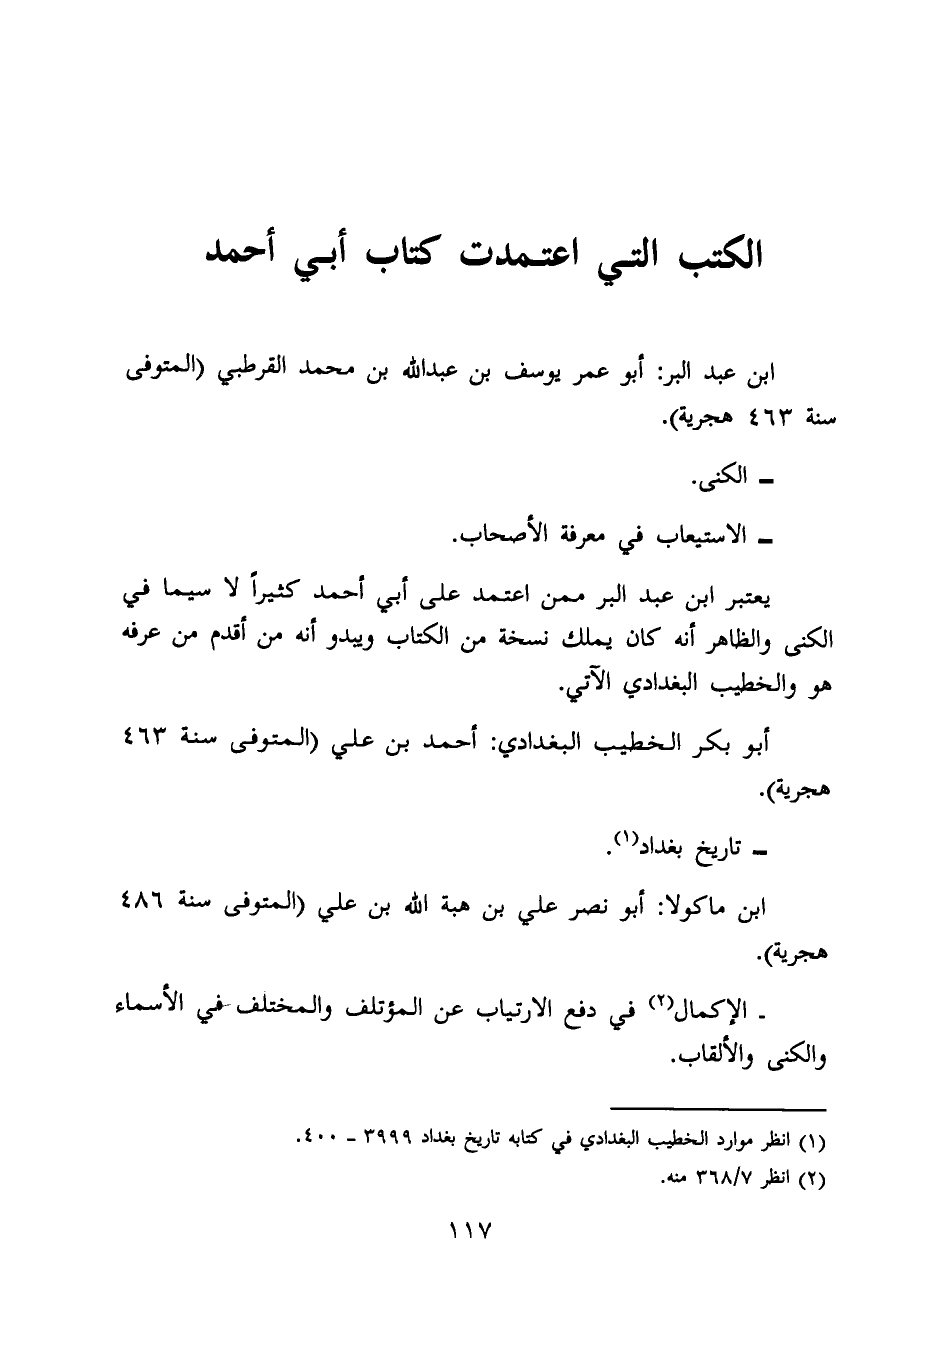 الكتب التي اعتمدت كتاب أبي أحمد
ابن عبد البر: أبو عمر يوسف بن عبدالله بن محمد القرطبي (المتوفى
سنة ٤٦٣ هجرية).
ـ الكنى.
ـ الاستيعاب في معرفة الأصحاب.
يعتبر ابن عبد البر ممن اعتمد على أبي أحمد كثيراً لا سيما في
الكنى والظاهر أنه كان يملك نسخة من الكتاب ويبدو أنه من أقدم من عرفه
هو والخطيب البغدادي الآتي.
أبو بكر الخطيب البغدادي: أحمد بن علي (المتوفى سنة ٤٦٣
هجرية).
ـ تاريخ بغداد(١).
ابن ماكولا: أبو نصر علي بن هبة الله بن علي (المتوفى سنة ٤٨٦
هجرية).
ـ الإكمال(٢) في دفع الارتياب عن المؤتلف والمختلف في الأسماء
والكنى والألقاب.
(١) انظر موارد الخطيب البغدادي في كتابه تاريخ بغداد ٣٩٩٩ ـ ٤٠٠.
(٢) انظر ٣٦٨/٧ منه.
١١٧